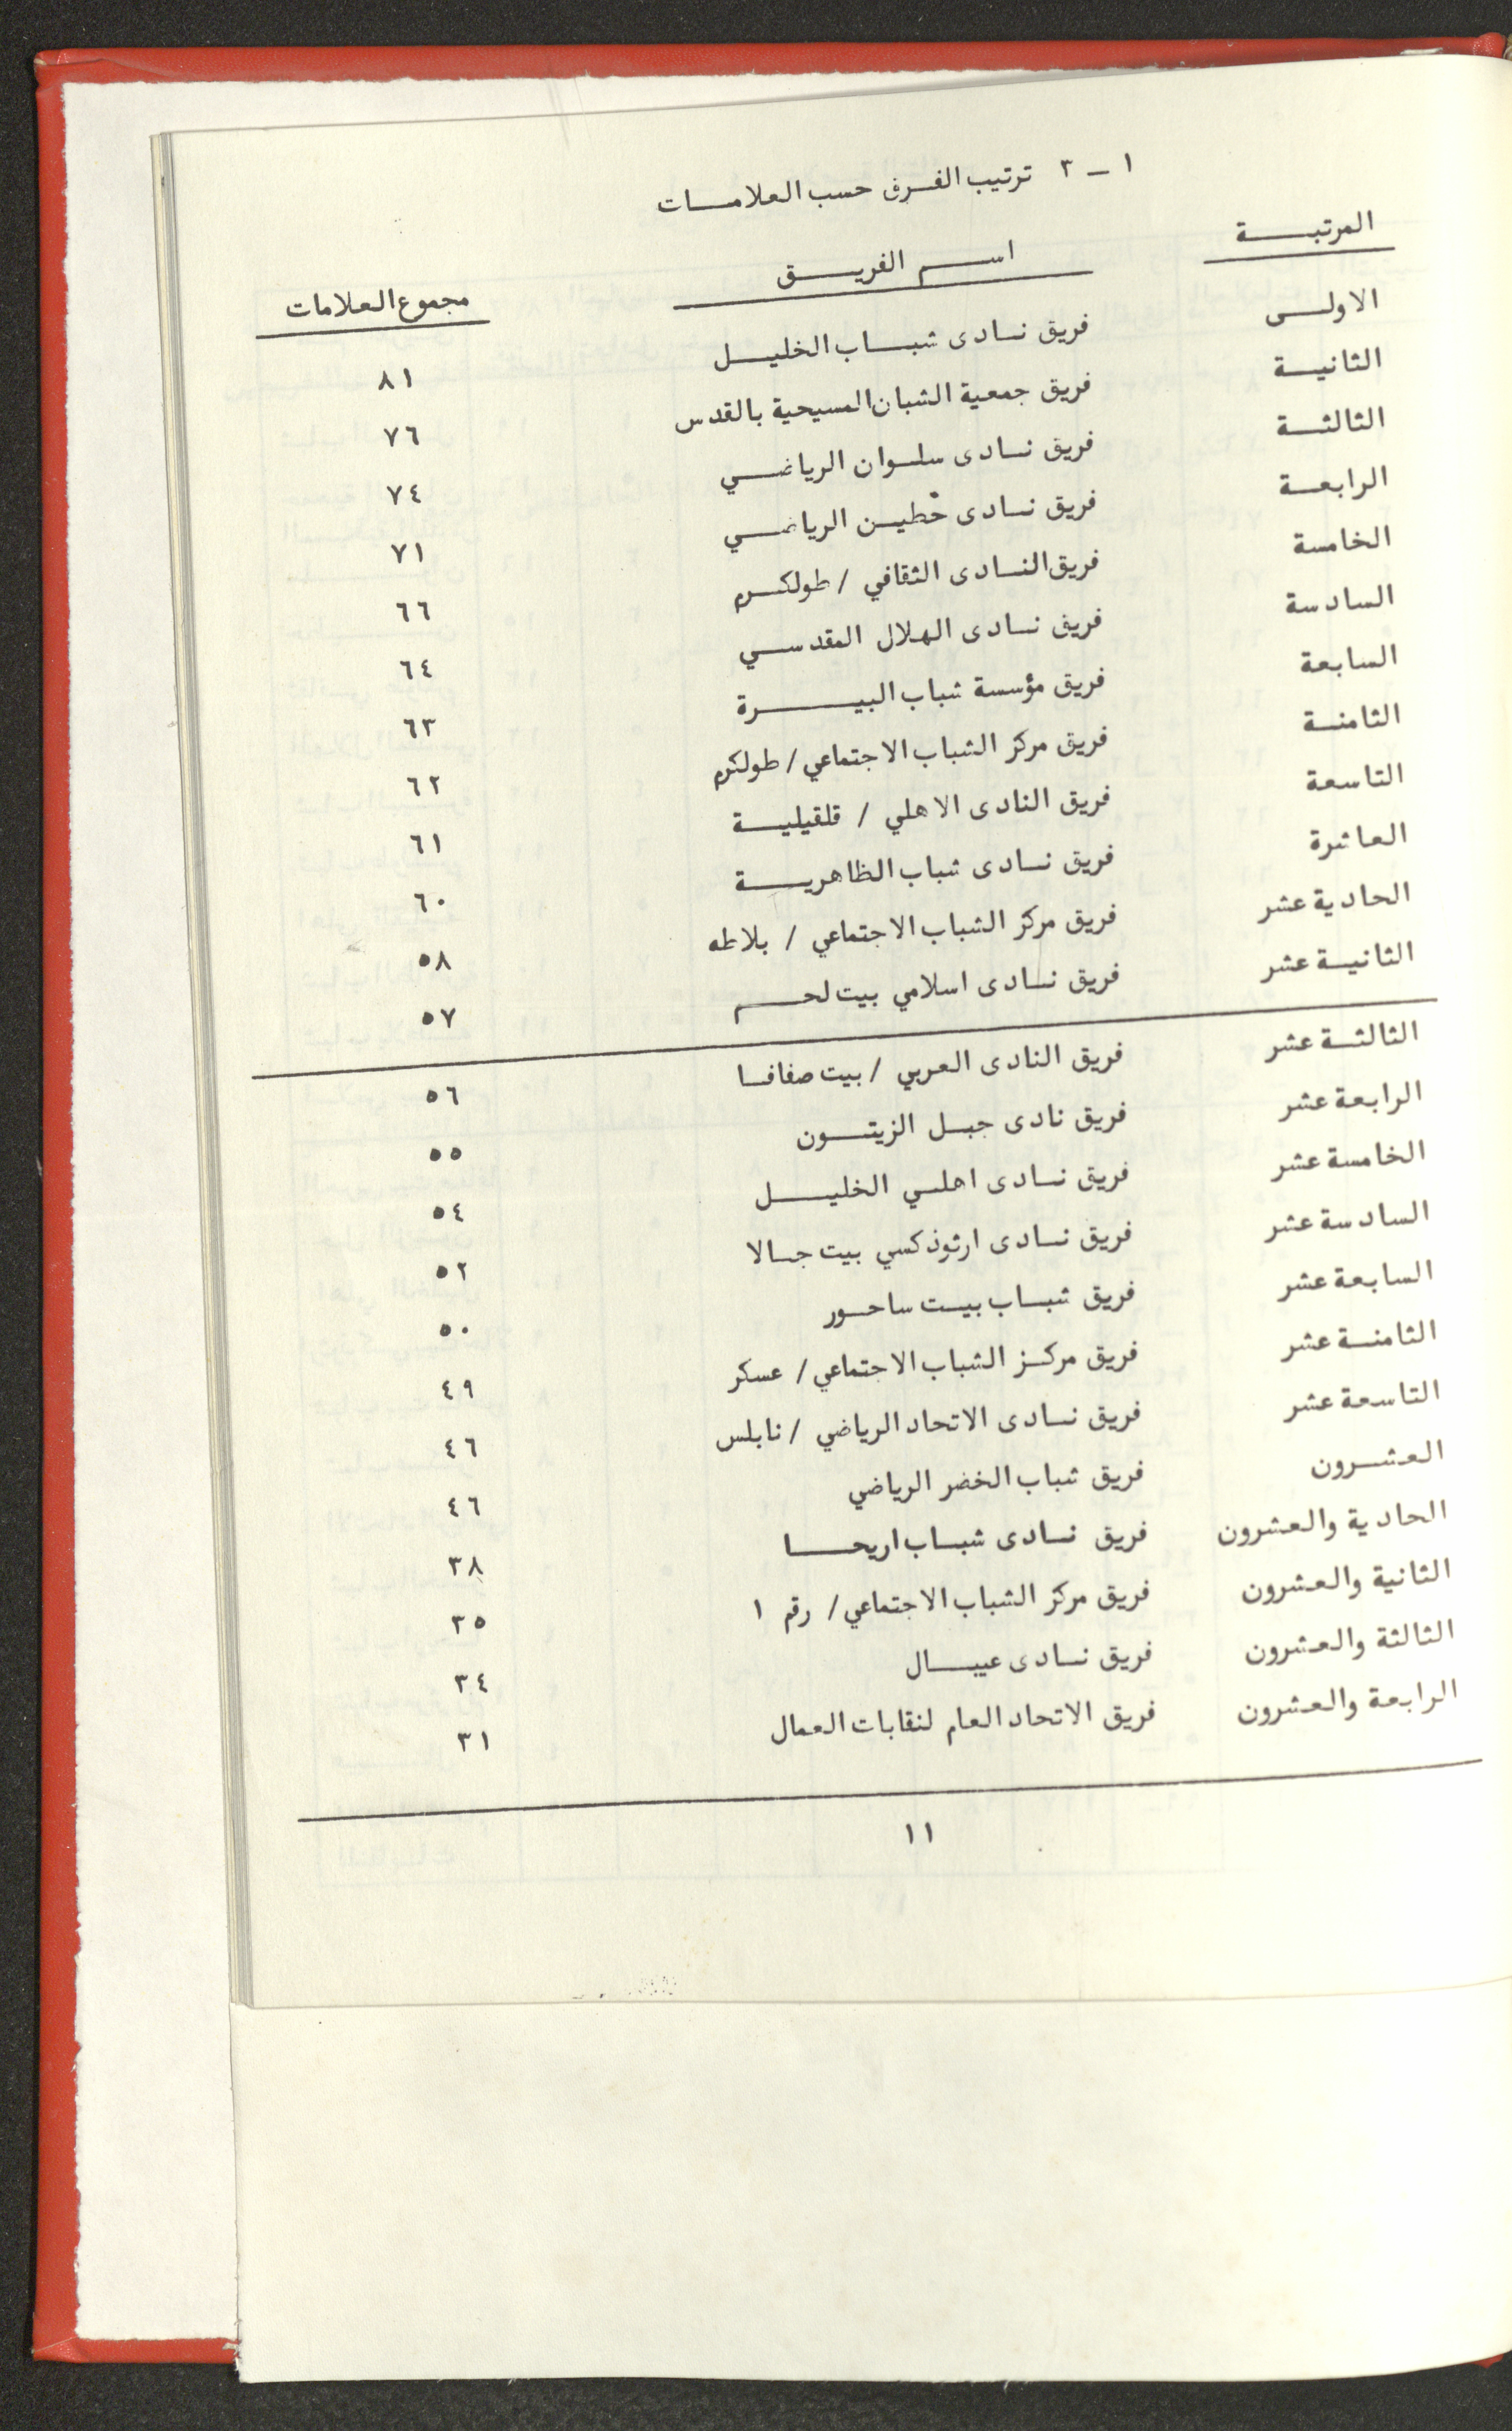 ١ _ ٣ ترتيب الفرق حسب العلامات
المرتبة اسم الفريق مجموع العلامات
الاولى فريق نادى شباب الخليل ٨١
الثانية فريق جمعية الشبان المسيحية بالقدس ٧٦
الثالثة فريق نادى سلوان الرياضي ٧٤
الرابعة فريق نادى حطين الرياضي ٧١
الخامسة فريق النادى الثقافي / طولكرم ٦٦
السادسة فريق نادى الهلال المقدسي ٦٤
السابعة فريق مؤسسة شباب البيرة ٦٣
الثامنة فريق مركز الشباب الاجتماعي / طولكرم ٦٢
التاسعة فريق النادى الاهلي / قلقيلية ٦١
العاشرة فريق نادى شباب الظاهرية ٦٠
الحادية عشر فريق مركز الشباب الاجتماعي / بلاطه ٥٨
الثانية عشر فريق نادى اسلامي بيت لحم ٥٧
الثالثة عشر فريق النادى العربي / بيت صفافا ٥٦
الرابعة عشر فريق نادى جبل الزيتون ٥٥
الخامسة عشر فريق نادى اهلي الخليل ٥٤
السادسة عشر فريق نادى ارثوذكسي بيت جالا ٥٢
السابعة عشر فريق شباب بيت ساحور ٥٠
الثامنة عشر فريق مركز الشباب الاجتماعي / عسكر ٤٩
التاسعة عشر فريق نادى الاتحاد الرياضي / نابلس ٤٦
العشرون فريق شباب الخضر الرياضي ٤٦
الحادية والعشرون فريق نادى شباب اريحا ٣٨
الثانية والعشرون فريق مركز الشباب الاجتماعي / رقم ١ ٣٥
الثالثة والعشرون فريق نادى عيبال ٣٤
الرابعة والعشرون فريق الاتحاد العام لنقابات العمال ٣١
١١